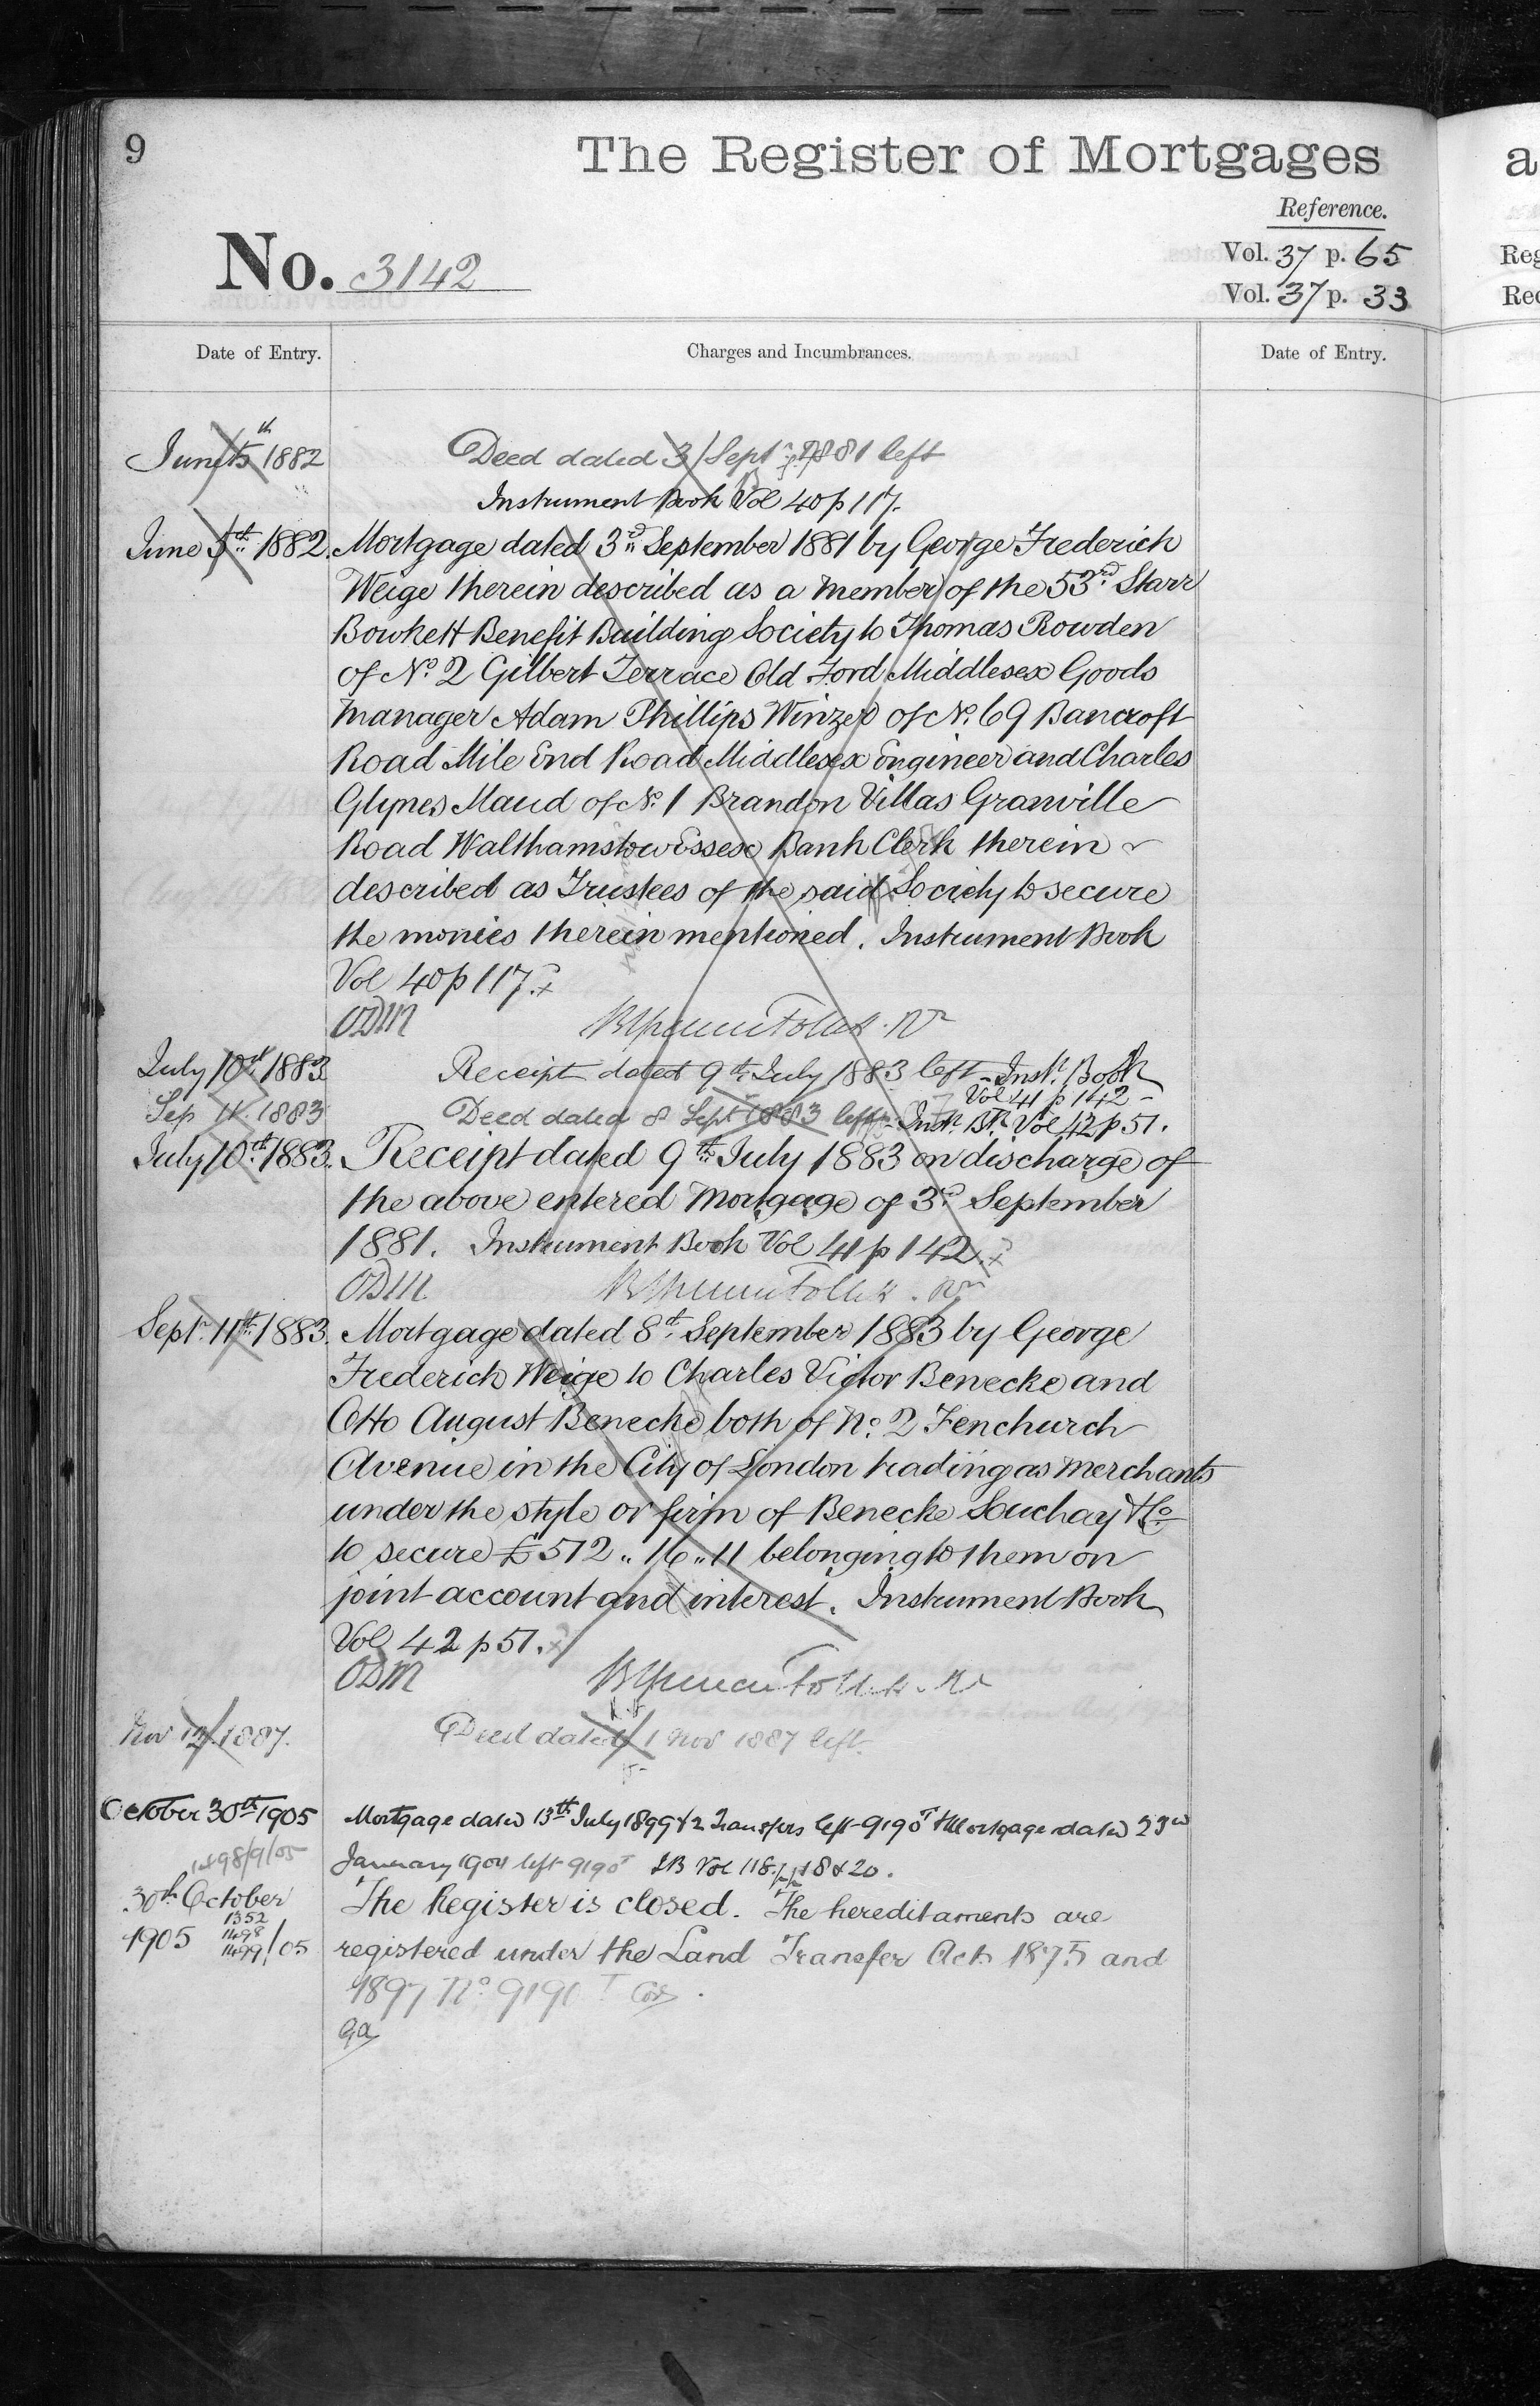 9
The Register of Mortgages
a
Reference.
No. 3142
Vol. 37 p. 65
Vol. 37 p. 33
Reg
Date of Entry.
Charges and Incumbrances.
Date of Entry.
June 5th 1882
Deed dated 3 Sept 1881 left
Instrument Book Vol 40 p 117.
June 5th 1882. Mortgage dated 3rd September 1881 by George Frederick
Weige therein described as a member of the 53rd Starr
Bowkett Benefit Building Society to Thomas Rowden
of No. 2 Gilbert Terrace Old Ford Middlesex Goods
Manager Adam Phillips Winzer of No. 69 Bancroft
Road Mile End Road Middlesex Engineer and Charles
Glynes Maud of No. 1 Brandon Villas Granville
Road Walthamstow Essex Bank Clerk therein
described as Trustees of the said Society to secure
the monies therein mentioned. Instrument Book
Vol 40 p 117.
ODM
July 10th 1883
Receipt dated 9th July 1883 left - Inst. Book
Vol 41 p 142 -
Sep 11. 1883
Deed dated 8 Sept 1883 left - Inst. Bk. Vol 42 p 51.
July 10th 1883. Receipt dated 9th July 1883 on discharge of
the above entered Mortgage of 3rd September
1881. Instrument Book Vol 41 p 142.
ODM
Septr. 11th 1883. Mortgage dated 8th September 1883 by George
Frederick Weige to Charles Victor Benecke and
Otto August Benecke both of No. 2 Fenchurch
Avenue in the City of London trading as Merchants
under the style or firm of Benecke Souchay & Co
to secure £512 " 16 " 11 belonging to them on
joint account and interest. Instrument Book
Vol 42 p 51.
ODM
Nov 12. 1887.
Deed dated 1 Nov 1887 left.
October 30th 1905
Mortgage dated 13th July 1899 & 2 Transfers left 9190T & Mortgage dated 23rd
1498/9/05
January 1904 left 9190T IB Vol 118. pp 18 & 20.
30th October
The Register is closed. The hereditaments are
1352
1498
1905 1499/05
registered under the Land Transfer Acts 1875 and
1897 No 9190 T